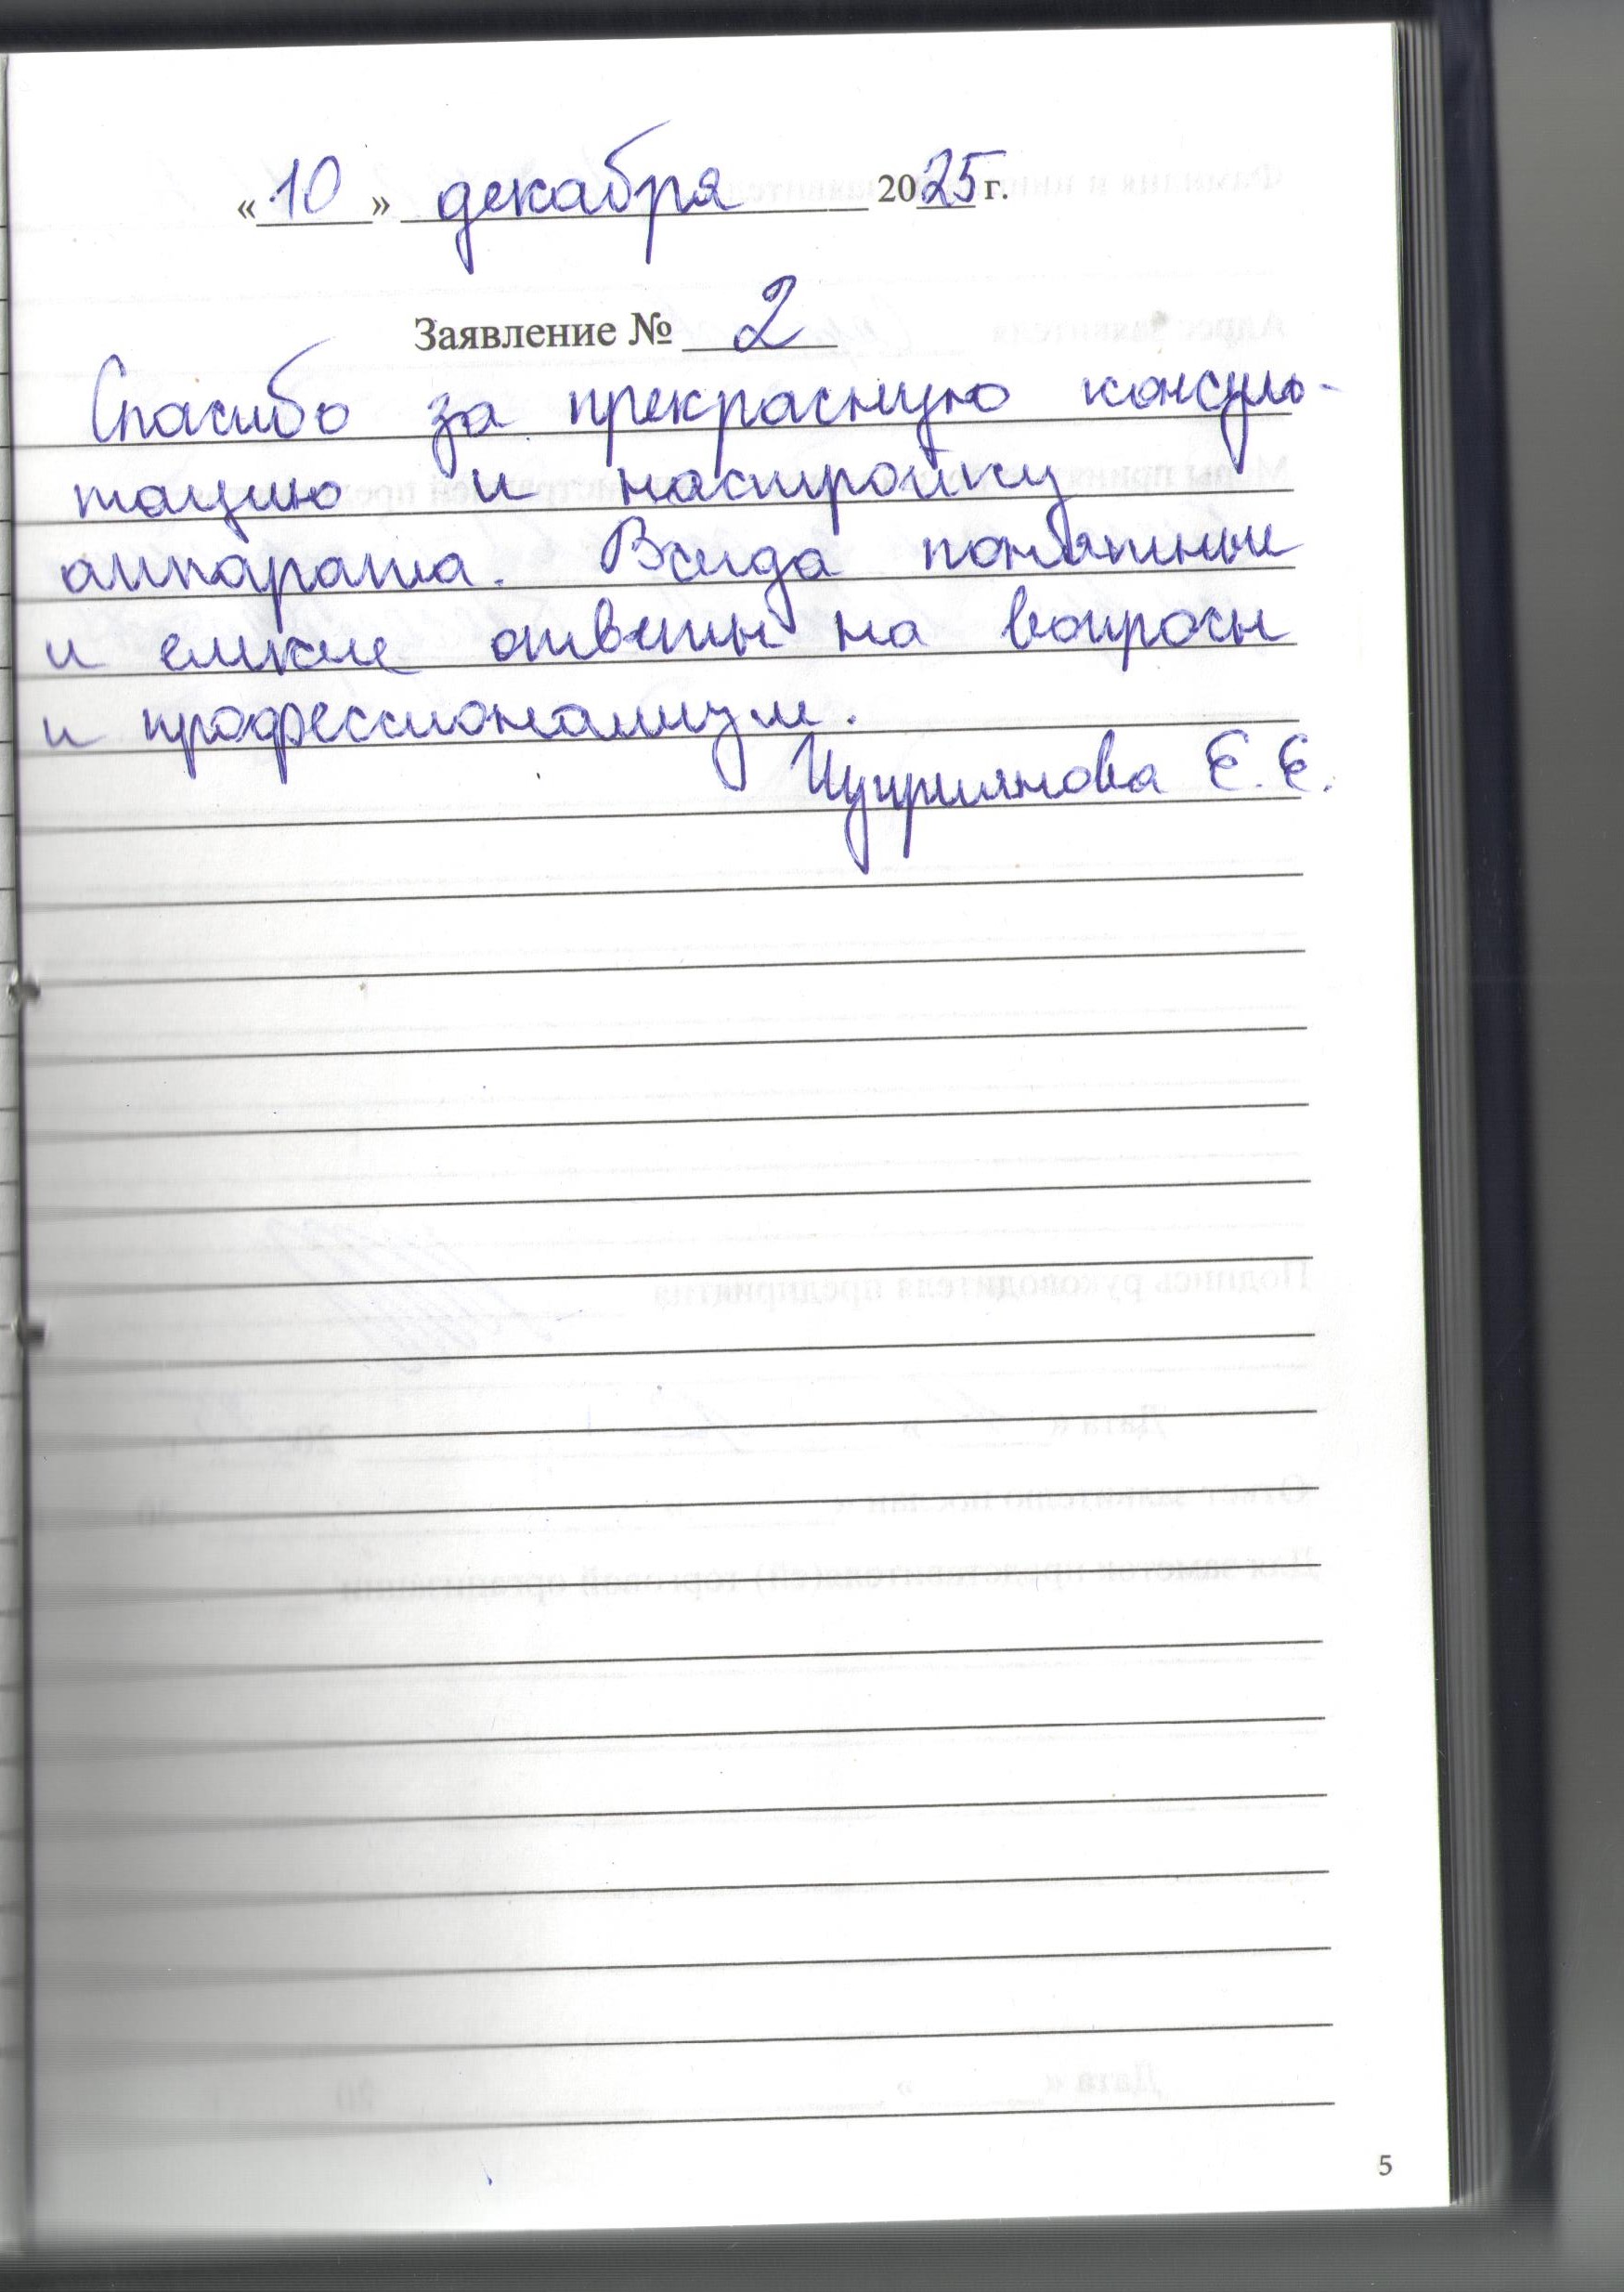 «10» декабря 2025 г.
Заявление № 2
Спасибо за прекрасную консуль-
тацию и настройку
аппарата. Всегда понятные
и емкие ответы на вопросы
и профессионализм.
Е. Е.
5